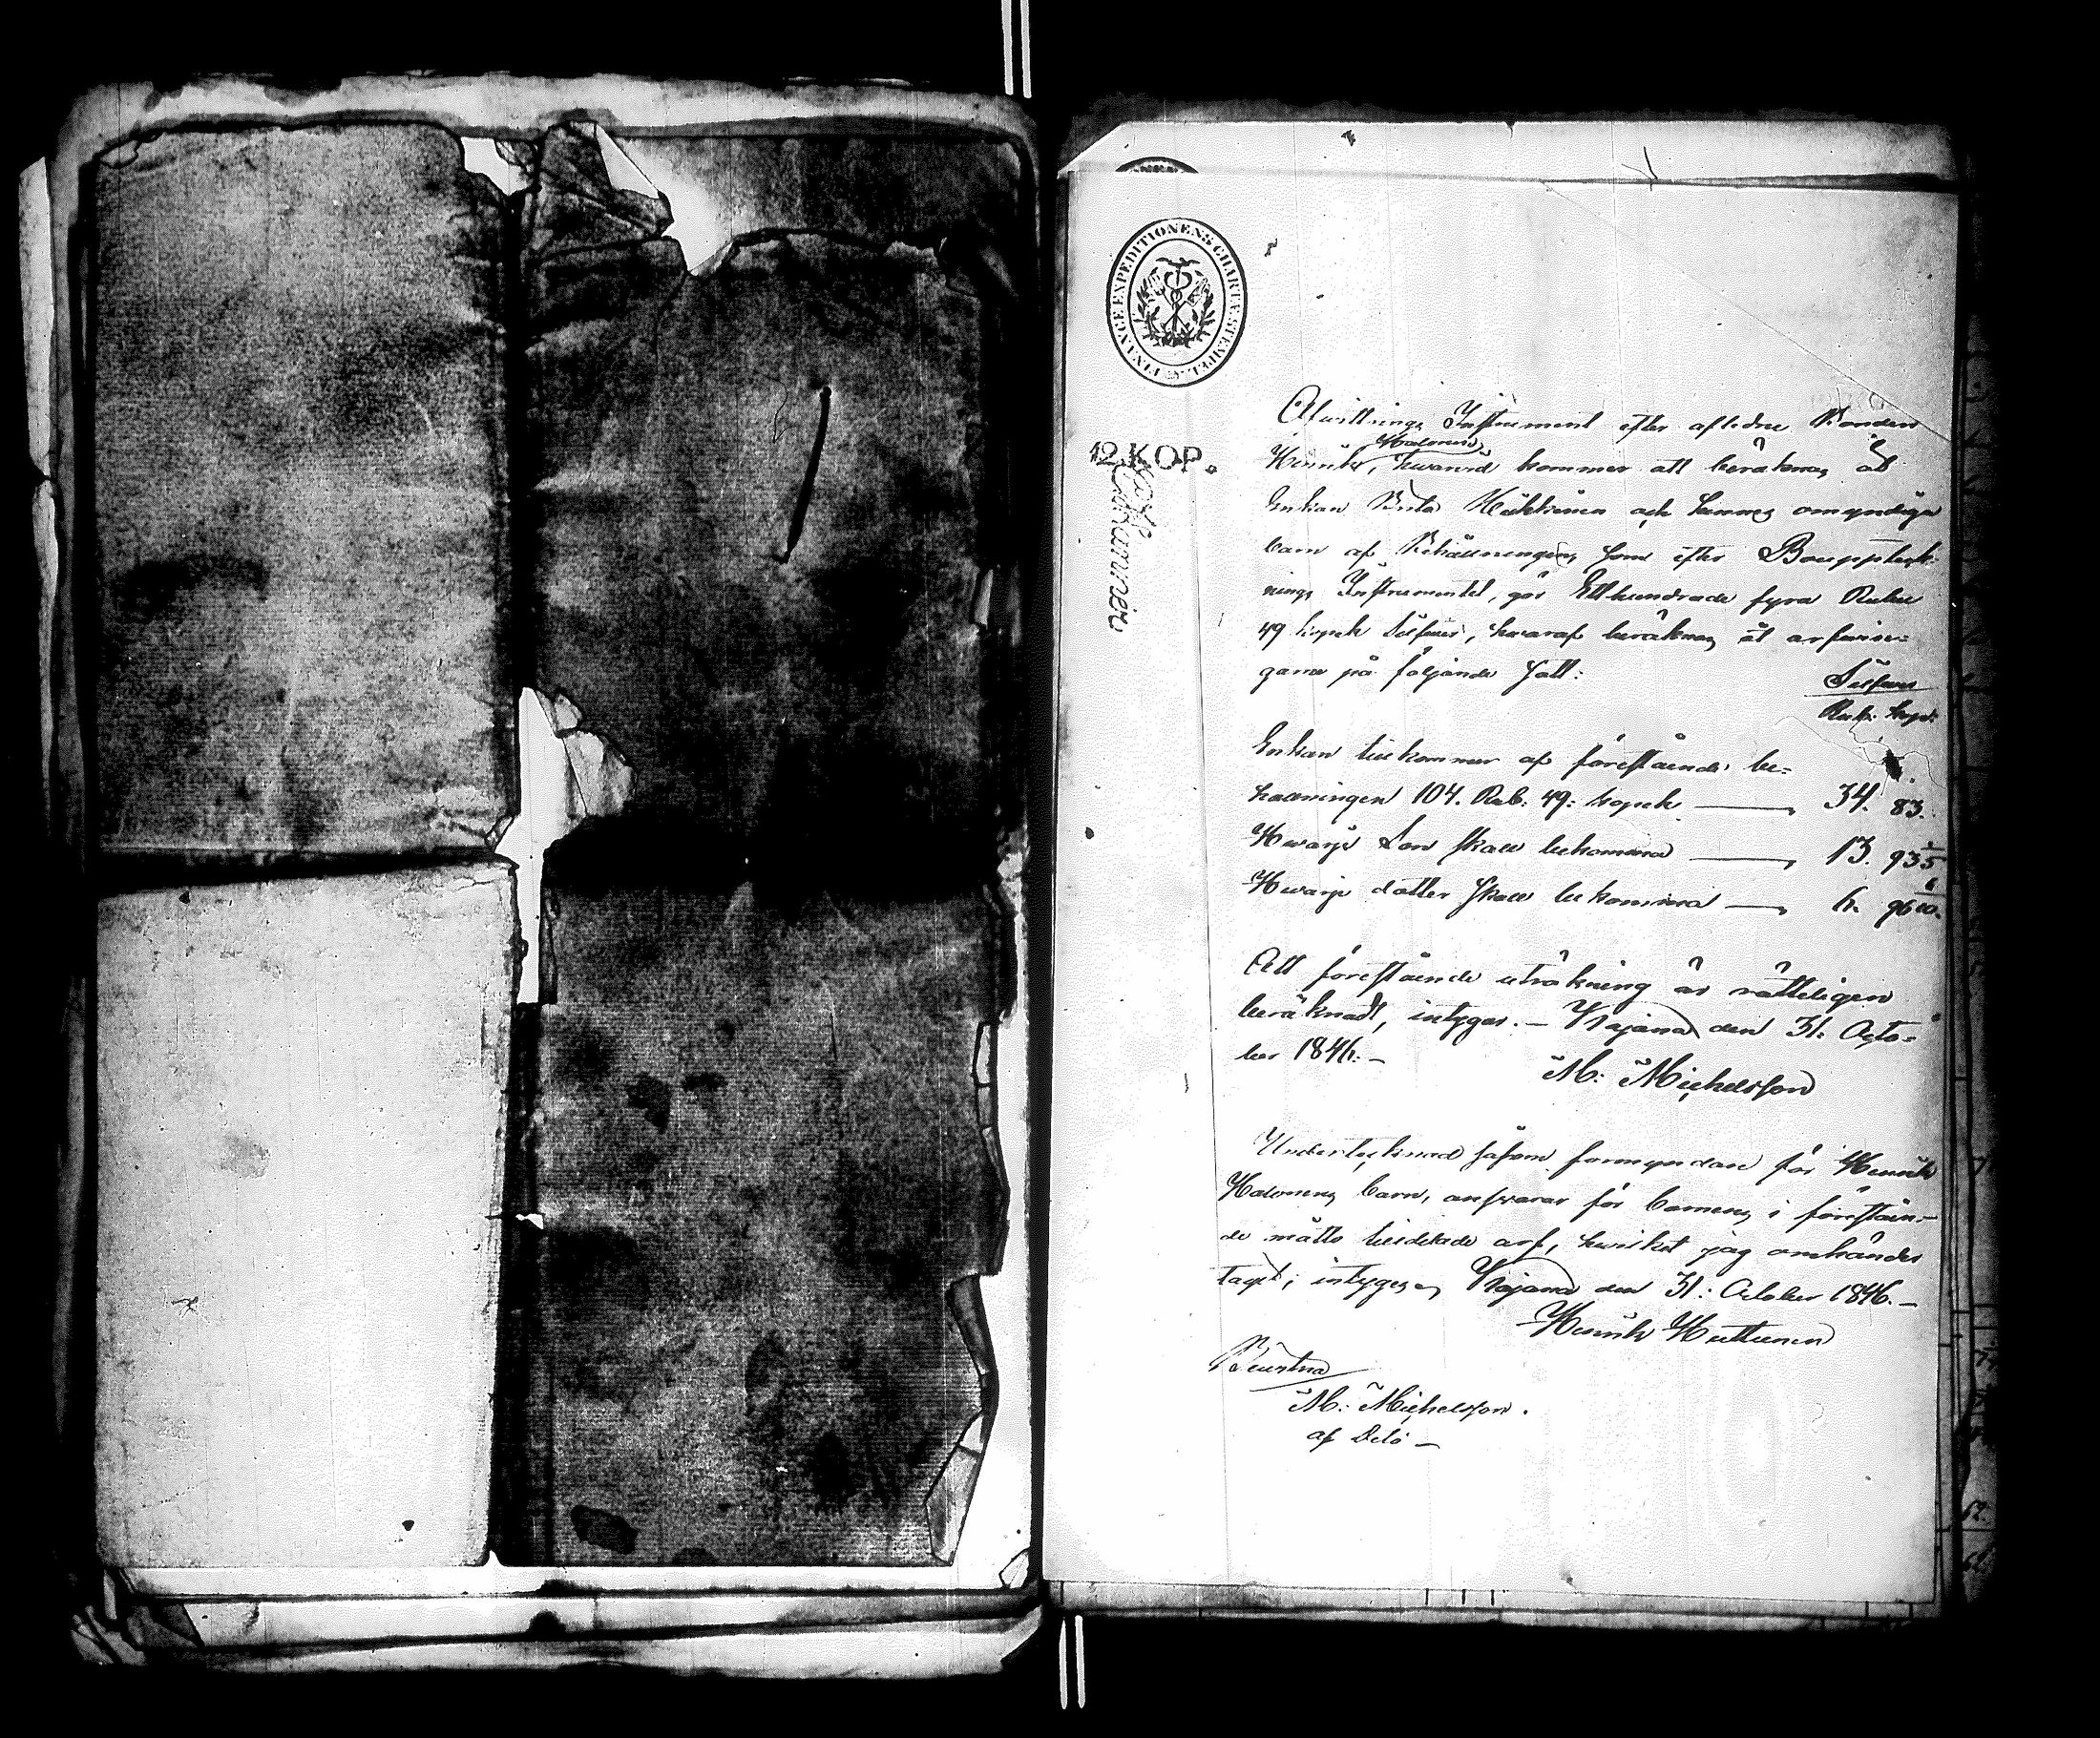 FINANCE EXPEDITIONENS CHARTÆ STEMPEL
12 KOP.
Afwittrings Instrument efter aflidne Bonden
Halonens
Henrik, hwarvid kommer att beräknas åt
Enkan Brita Heikkinen och hennes omyndiga
barn af Behållningen, som efter Boupptek-
nings Instrumentet, gör Etthundrade fyra Rubel
49 kopek Silfwer, hwaraf beräknas åt arfwin-
garne på följande satt:
Silfwer
Rub: kop:
Enkan tillkommer af förestående be-
hållningen 104. Rub. 49: kopek — 34. 83.
Hwarje Son skall bekomma — 13. 93
Hwarje dotter skall bekomma — 6. 96
Att förestående uträkning är rätteligen
beräknadt, intygar. – Kajana den 31. Octo-
ber 1846. –
M: Michelsson
Undertecknad såsom förmyndare för Henrik
Halonens barn, answarar för barnens i förestäen-
de måtto tilldelade arf, hwilket jag omhänder
taget; intygas, Kajana den 31: October 1846. –
Henrik Huttunen
Bewittna
M: Michelsson.